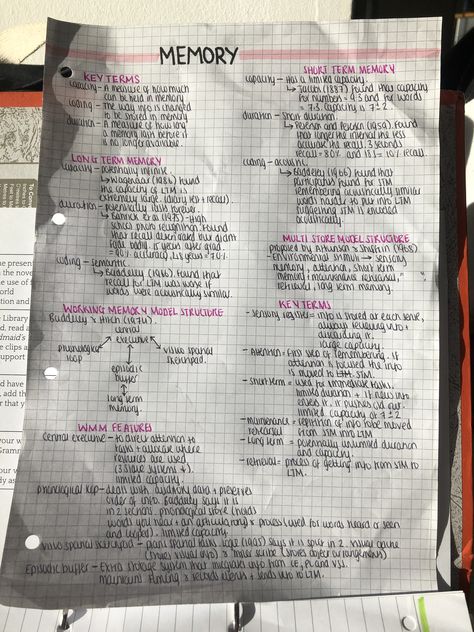 MEMORY
KEY TERMS
capacity - A measure of how much
can be held in memory
coding - The way info is changed
to be stored in memory
duration - A measure of how long
a memory lasts before it
is no longer available.
LONG TERM MEMORY
capacity - potentially infinite
↳ Wagenaar (1986) found
the capacity of LTM is
extremely large (diary test + recall)
duration - potentially lasts forever.
↳ Bahrick et al (1975) - High
school photo recognition. Found
that recall
90% accuracy
coding - semantic
↳ Baddeley (1966) found that
recall for LTM was worse if
words were semantically similar.
WORKING MEMORY MODEL STRUCTURE
Baddeley & Hitch (1974).
central
executive
phonological
loop
visuo spatial
sketchpad.
episodic
buffer
long term
memory.
WMM FEATURES
central executive - to direct attention to
tasks + allocate where
resources are used
(3 slave systems).
limited capacity.
phonological loop - deals with auditory data + preserves
order of info. Baddeley says it is
in 2 sections. phonological store (holds
words you hear) + an articulatory process (used for words heard or seen
and looped). limited capacity.
visuo spatial sketchpad - plans spatial tasks. Logie (1995) says it is split in 2. visual cache
(stores visual info) & inner scribe (stores object arrangement)
Episodic buffer - Extra storage system that integrates info from CE, PL and VSS.
maintains timing & records events + sends info to LTM.
SHORT TERM MEMORY
capacity - Has a limited capacity.
↳ Jacobs (1887) found that capacity
for numbers = 9.3 and for words
= 7.3 capacity is 7±2.
duration - Short duration.
↳ Peterson and Peterson (1959). Found
that longer the interval the less
accurate the recall. 3 seconds
recall = 80% and 18s = 10% recall.
coding - acoustic.
↳ Baddeley (1966) found that
participants found for STM
remembering acoustically similar
words harder to put into LTM
suggesting STM is encoded
acoustically.
MULTI STORE MODEL STRUCTURE
proposed by Atkinson & Shiffrin (1968)
- Environmental stimuli → sensory
memory, attention, short term
memory, maintenance rehearsal,
retrieval, long term memory.
KEY TERMS
- Sensory register = info is stored at each sense,
always receiving info +
discarding it.
large capacity.
- Attention = first step of remembering. If
attention is focused the info
is moved to STM.
- Short term = used for immediate tasks.
limited duration + if new info
enters it, it pushes old out.
limited capacity of 7±2
- maintenance = repetition of info to be moved
rehearsal from STM into LTM
- Long term = potentially unlimited duration
and capacity.
- retrieval = process of getting info from STM to
LTM.